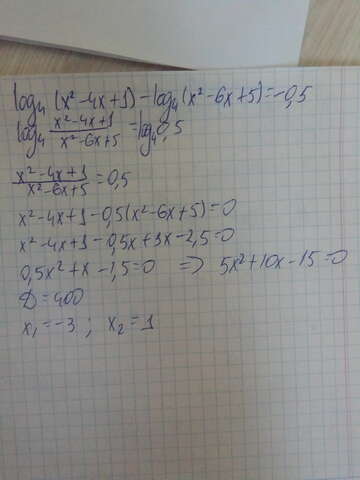 log₄(x²-4x+1)-log₄(x²-6x+5)=-0,5
log₄ (x²-4x+1)/(x²-6x+5) = log₄0,5
(x²-4x+1)/(x²-6x+5) = 0,5
x²-4x+1-0,5(x²-6x+5)=0
x²-4x+1-0,5x+3x-2,5=0
0,5x²+x-1,5=0 => 5x²+10x-15=0
D=400
x₁=-3; x₂=1